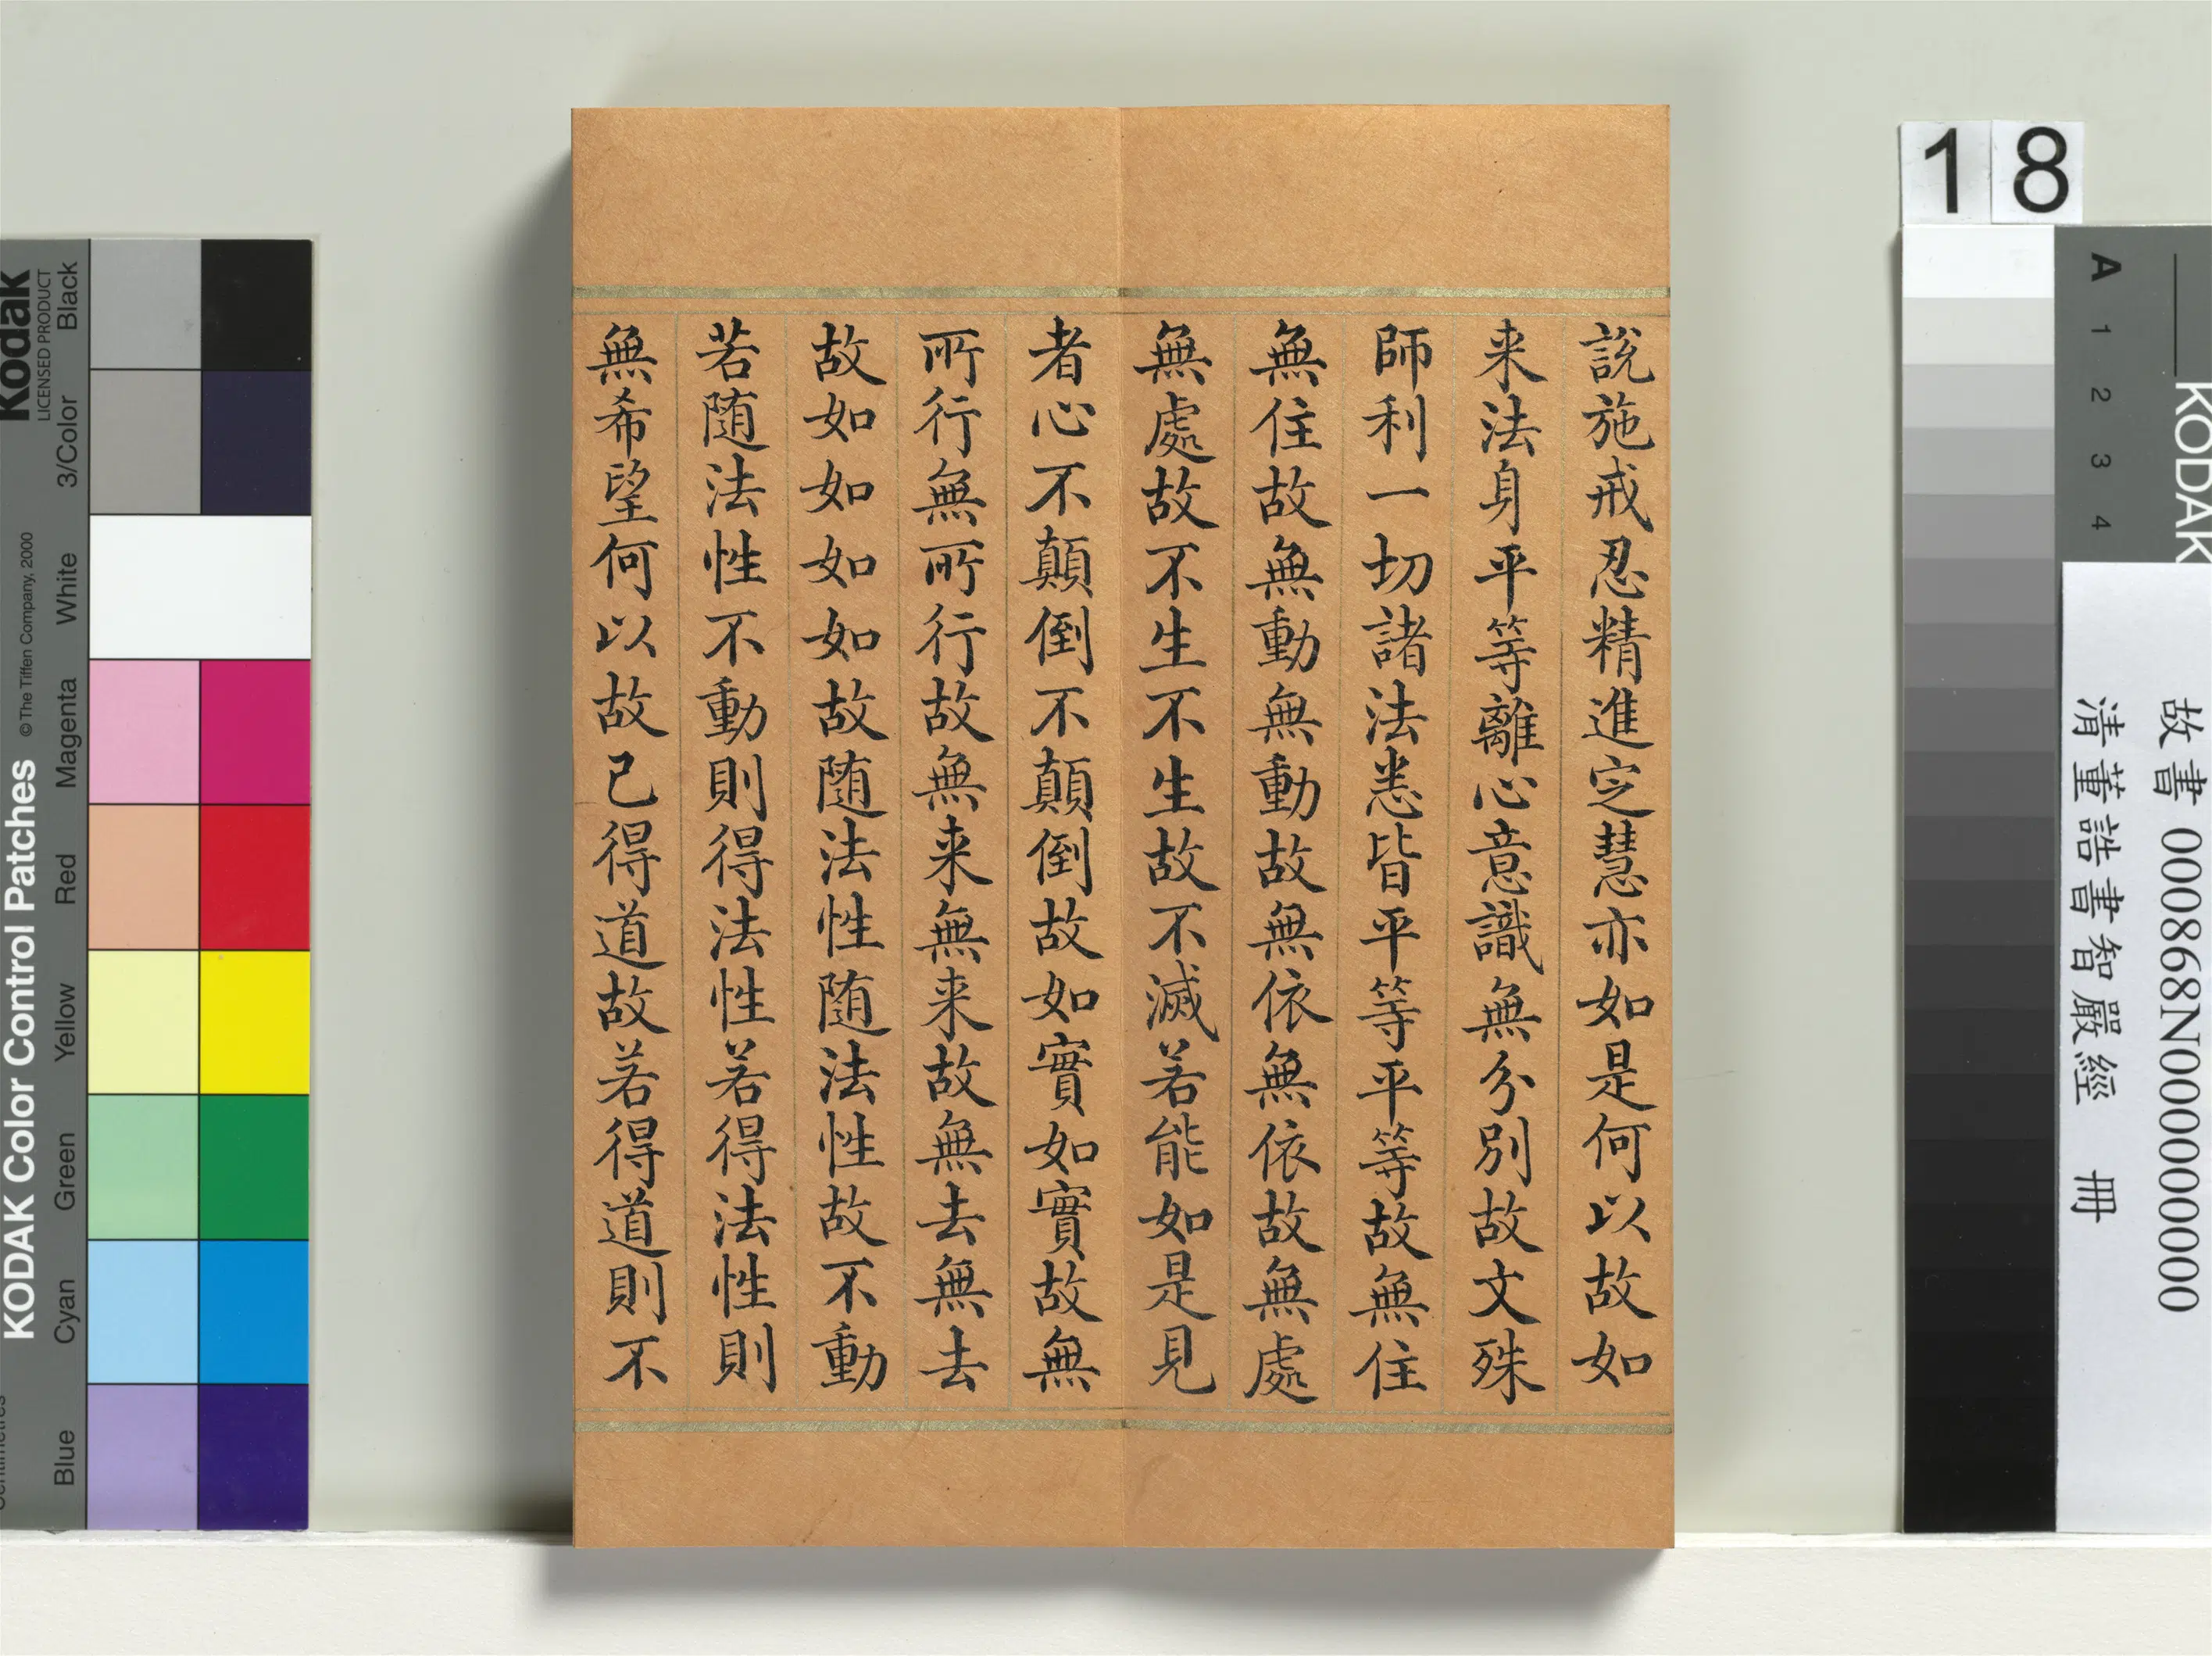 說施戒忍精進定慧亦如是何以故如
来法身平等離心意識無分別故文殊
師利一切諸法悉皆平等平等故無住
無住故無動無動故無依無依故無處
無處故不生不生故不滅若能如是見
者心不顛倒不顛倒故如實如實故無
所行無所行故無来無来故無去無去
故如如如如故随法性随法性故不動
若随法性不動則得法性若得法性則
無希望何以故已得道故若得道則不
18
Kodak
LICENSED PRODUCT
KODAK Color Control Patches
©The Tiffen Company, 2000
Black
3/Color
White
Magenta
Red
Yellow
Green
Cyan
Blue
KODAK
A 1 2 3 4
故書 000868N000000000
清董誥書智嚴經 冊